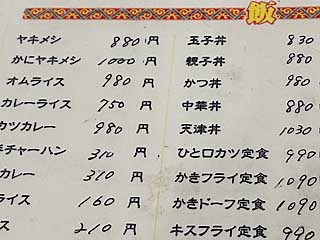 飯
ヤキメシ 880円
かにヤキメシ 1000円
オムライス 980円
カレーライス 750円
カツカレー 980円
チャーハン 310円
カレー 310円
ライス 160円
ス 210円
玉子丼 830
親子丼 880
かつ丼 980
中華丼 880
天津丼 1030
ひと口カツ定食 990
かきフライ定食 1090
かきドーフ定食 1090
キスフライ定食 990